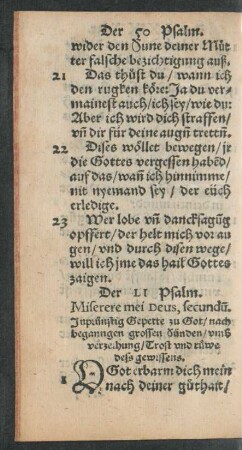 Der 50 Psalm.
wider den Sune deiner Můt
ter falsche bezichtigung auß.
21 Das thůst du / wann ich
den rugken kőre: Ja du ver-
mainest auch / ich sey / wie du:
Aber ich wird dich straffen /
vñ dir für deine augñ trettñ.
22 Dises wöllet bewegen / jr
die Gottes vergessen habẽd /
auf das / wañ ich hinnimme /
nit nyemand sey / der eüch
erledige.
23 Wer lobe vñ dancksagũg
opffert / der helt mich vor au
gen / vnd durch disen wege /
will ich jme das hail Gottes
zaigen.
Der LI Psalm.
Miserere mei Deus, secundũ.
Inprünstig Gepette zu Got / nach
begangnen grossen Sünden / vmb
verzeihung / Trost vnd růwe
deß gewissens.
1 O Got erbarm dich mein
nach deiner güthait /